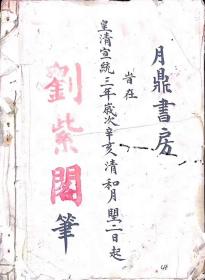 月鼎書房
旹在
皇清宣統三年歲次辛亥清和月朢二日起
劉紫閣筆